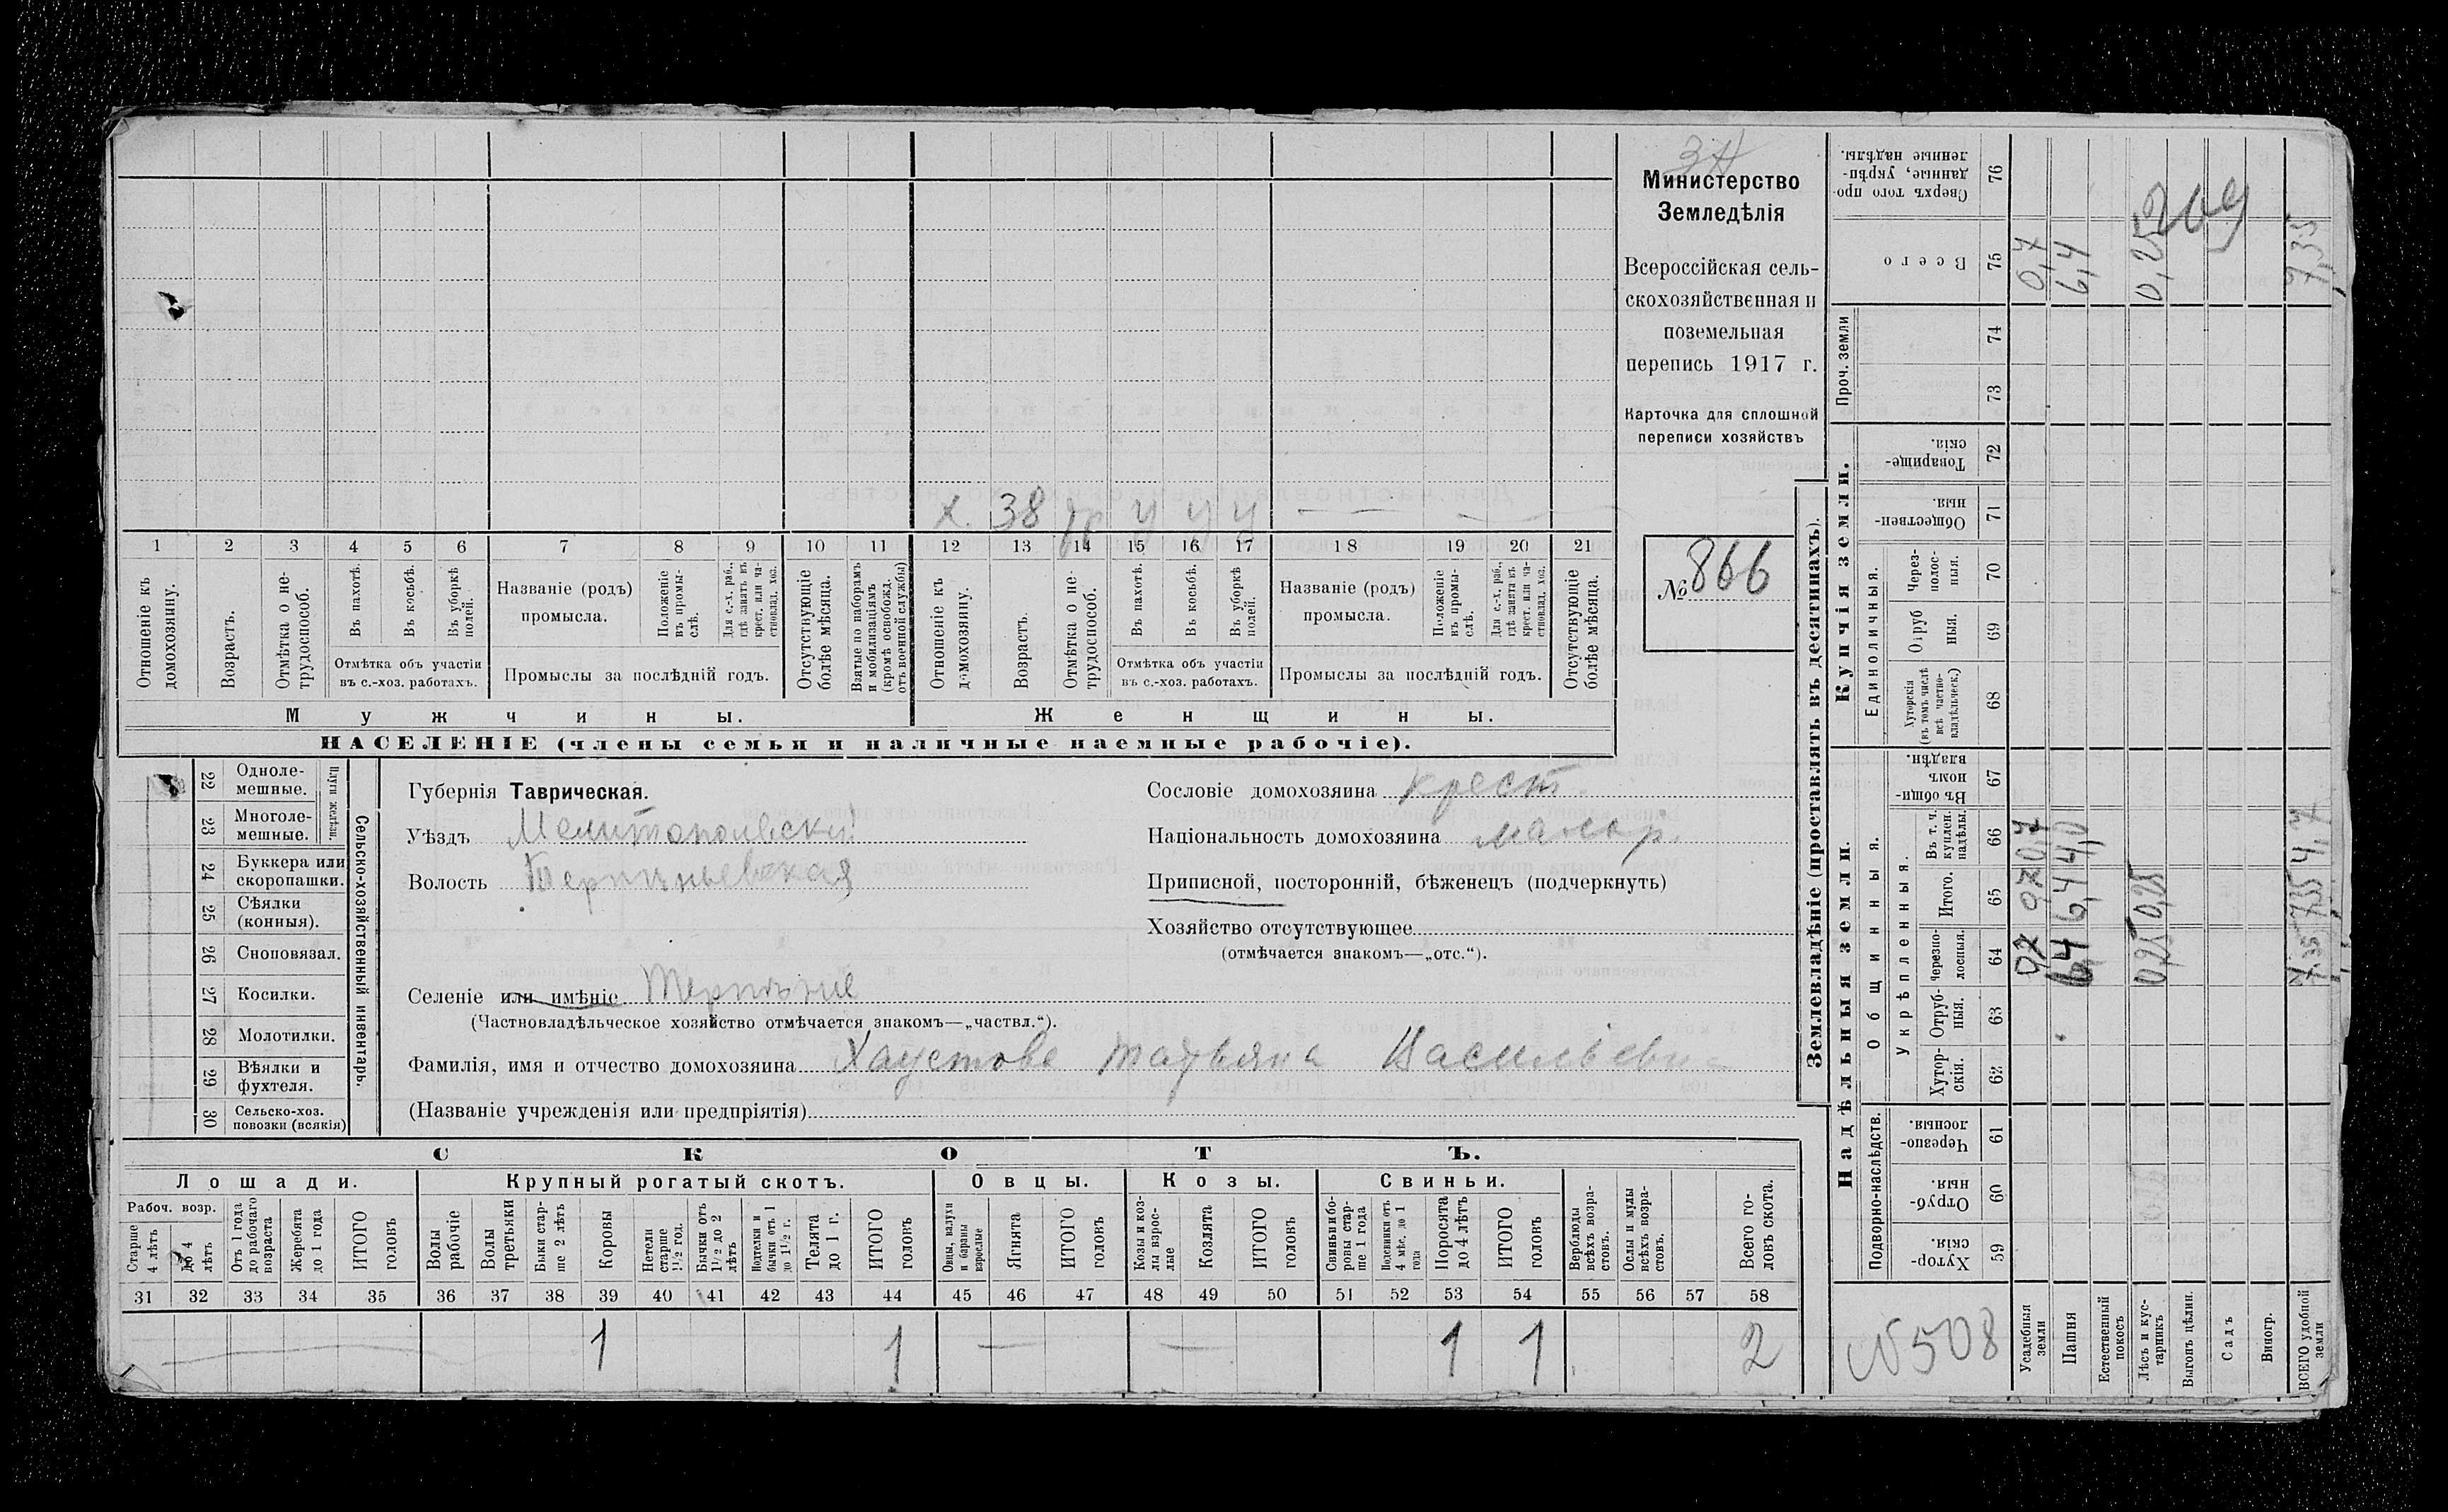 Министерство
Земледѣлія
Всероссійская сель-
скохозяйственная и
поземельная
перепись 1917 г.
Карточка для сплошной
переписи хозяйствъ
№ 866
х. 38 у у у — — — —
1 2 3 4 5 6 7 8 9 10 11 12 13 14 15 16 17 18 19 20 21
Отношеніе къ домохозяину.
Возрастъ.
Отмѣтка о не-трудоспособ.
Въ пахотѣ.
Въ косьбѣ.
Въ уборкѣ полей.
Отмѣтка объ участіи въ с.-хоз. работахъ.
Названіе (родъ) промысла.
Положеніе въ промы-слѣ.
Для с.-х. раб., гдѣ занятъ въ крест. или ча-стновлад. хоз.
Промыслы за послѣдній годъ.
Отсутствующіе болѣе мѣсяца.
Взятые по наборамъ и мобилизаціямъ (кромѣ освобожд. отъ военной службы)
Отношеніе къ домохозяину.
Возрастъ.
Отмѣтка о не-трудоспособ.
Въ пахотѣ.
Въ косьбѣ.
Въ уборкѣ полей.
Отмѣтка объ участіи въ с.-хоз. работахъ.
Названіе (родъ) промысла.
Положеніе въ промы-слѣ.
Для с.-х. раб., гдѣ занята въ крест. или ча-стновлад. хоз.
Промыслы за послѣдній годъ.
Отсутствующіе болѣе мѣсяца.
Мужчины. Женщины.
НАСЕЛЕНІЕ (члены семьи и наличные наемные рабочіе).
22 Одноле-мешные.
23 Многоле-мешные.
Плуги желѣзн.
24 Буккера или скоропашки.
25 Сѣялки (конныя).
26 Сноповязал.
27 Косилки.
28 Молотилки.
29 Вѣялки и фухтеля.
30 Сельско-хоз. повозки (всякія)
Сельско-хозяйственный инвентарь.
Губернія Таврическая.
Уѣздъ Мелитопольскій
Волость Терпѣньевская
Селеніе или имѣніе Терпѣніе
(Частновладѣльческое хозяйство отмѣчается знакомъ—„частвл.“).
Фамилія, имя и отчество домохозяина Хаустова Татьяна Васильевна
(Названіе учрежденія или предпріятія)
Сословіе домохозяина крест.
Національность домохозяина малор.
Приписной, посторонній, бѣженецъ (подчеркнуть)
Хозяйство отсутствующее
(отмѣчается знакомъ—„отс.“).
СКОТЪ.
Лошади. Крупный рогатый скотъ. Овцы. Козы. Свиньи.
Рабоч. возр.
Старше 4 лѣтъ
до 4 лѣтъ
Отъ 1 года до рабочаго возраста
Жеребята до 1 года
ИТОГО головъ
Волы рабочіе
Волы третьяки
Быки стар-ше 2 лѣтъ
Коровы
Нетели старше 1½ год.
Бычки отъ 1½ до 2 лѣтъ
Подтелки и бычки отъ 1 до 1½ г.
Телята до 1 г.
ИТОГО головъ
Овцы, валухи и бараны взрослые
Ягнята
ИТОГО головъ
Козы и коз-лы взрос-лые
Козлята
ИТОГО головъ
Свиньи и бо-ровы стар-ше 1 года
Подсвинки отъ 4 мѣс. до 1 года
Поросята до 4 лѣтъ
ИТОГО головъ
Верблюды всѣхъ возра-стовъ.
Ослы и мулы всѣхъ возра-стовъ.
Всего го-ловъ скота.
31 32 33 34 35 36 37 38 39 40 41 42 43 44 45 46 47 48 49 50 51 52 53 54 55 56 57 58
1 1 — — 1 1 2
Землевладѣніе (проставлять въ десятинахъ).
Надѣльныя земли. Купчія земли. Проч. земли
Подворно-наслѣдств.
Общинныя.
Укрѣпленныя.
Единоличныя.
59 Хутор-скія.
60 Отруб-ныя.
61 Черезпо-лосныя.
62 Хутор-скія.
63 Отруб-ныя.
64 Черезпо-лосныя.
65 Итого.
66 Въ т. ч. куплен. надѣлы.
67 Въ общин-номъ владѣн.
68 Хуторскія (въ томъ числѣ всѣ частно-владѣльческ.)
69 Отруб ныя.
70 Через-полос-ныя.
71 Обществен-ныя.
72 Товарище-скія.
73
74
75 Всего
76 Сверхъ того про-данные, укрѣп-ленные надѣлы.
N 508
Усадебныя земли 0,7 0,7 0,7 0,7
Пашня 6,4 6,4 4,0 6,4
Естественный покосъ
Лѣсъ и кус-тарникъ 0,25 0,25 0,25
Выгонъ цѣлин.
Садъ
Виногр.
ВСЕГО удобной земли 7,35 7,35 4,7 7,35
209